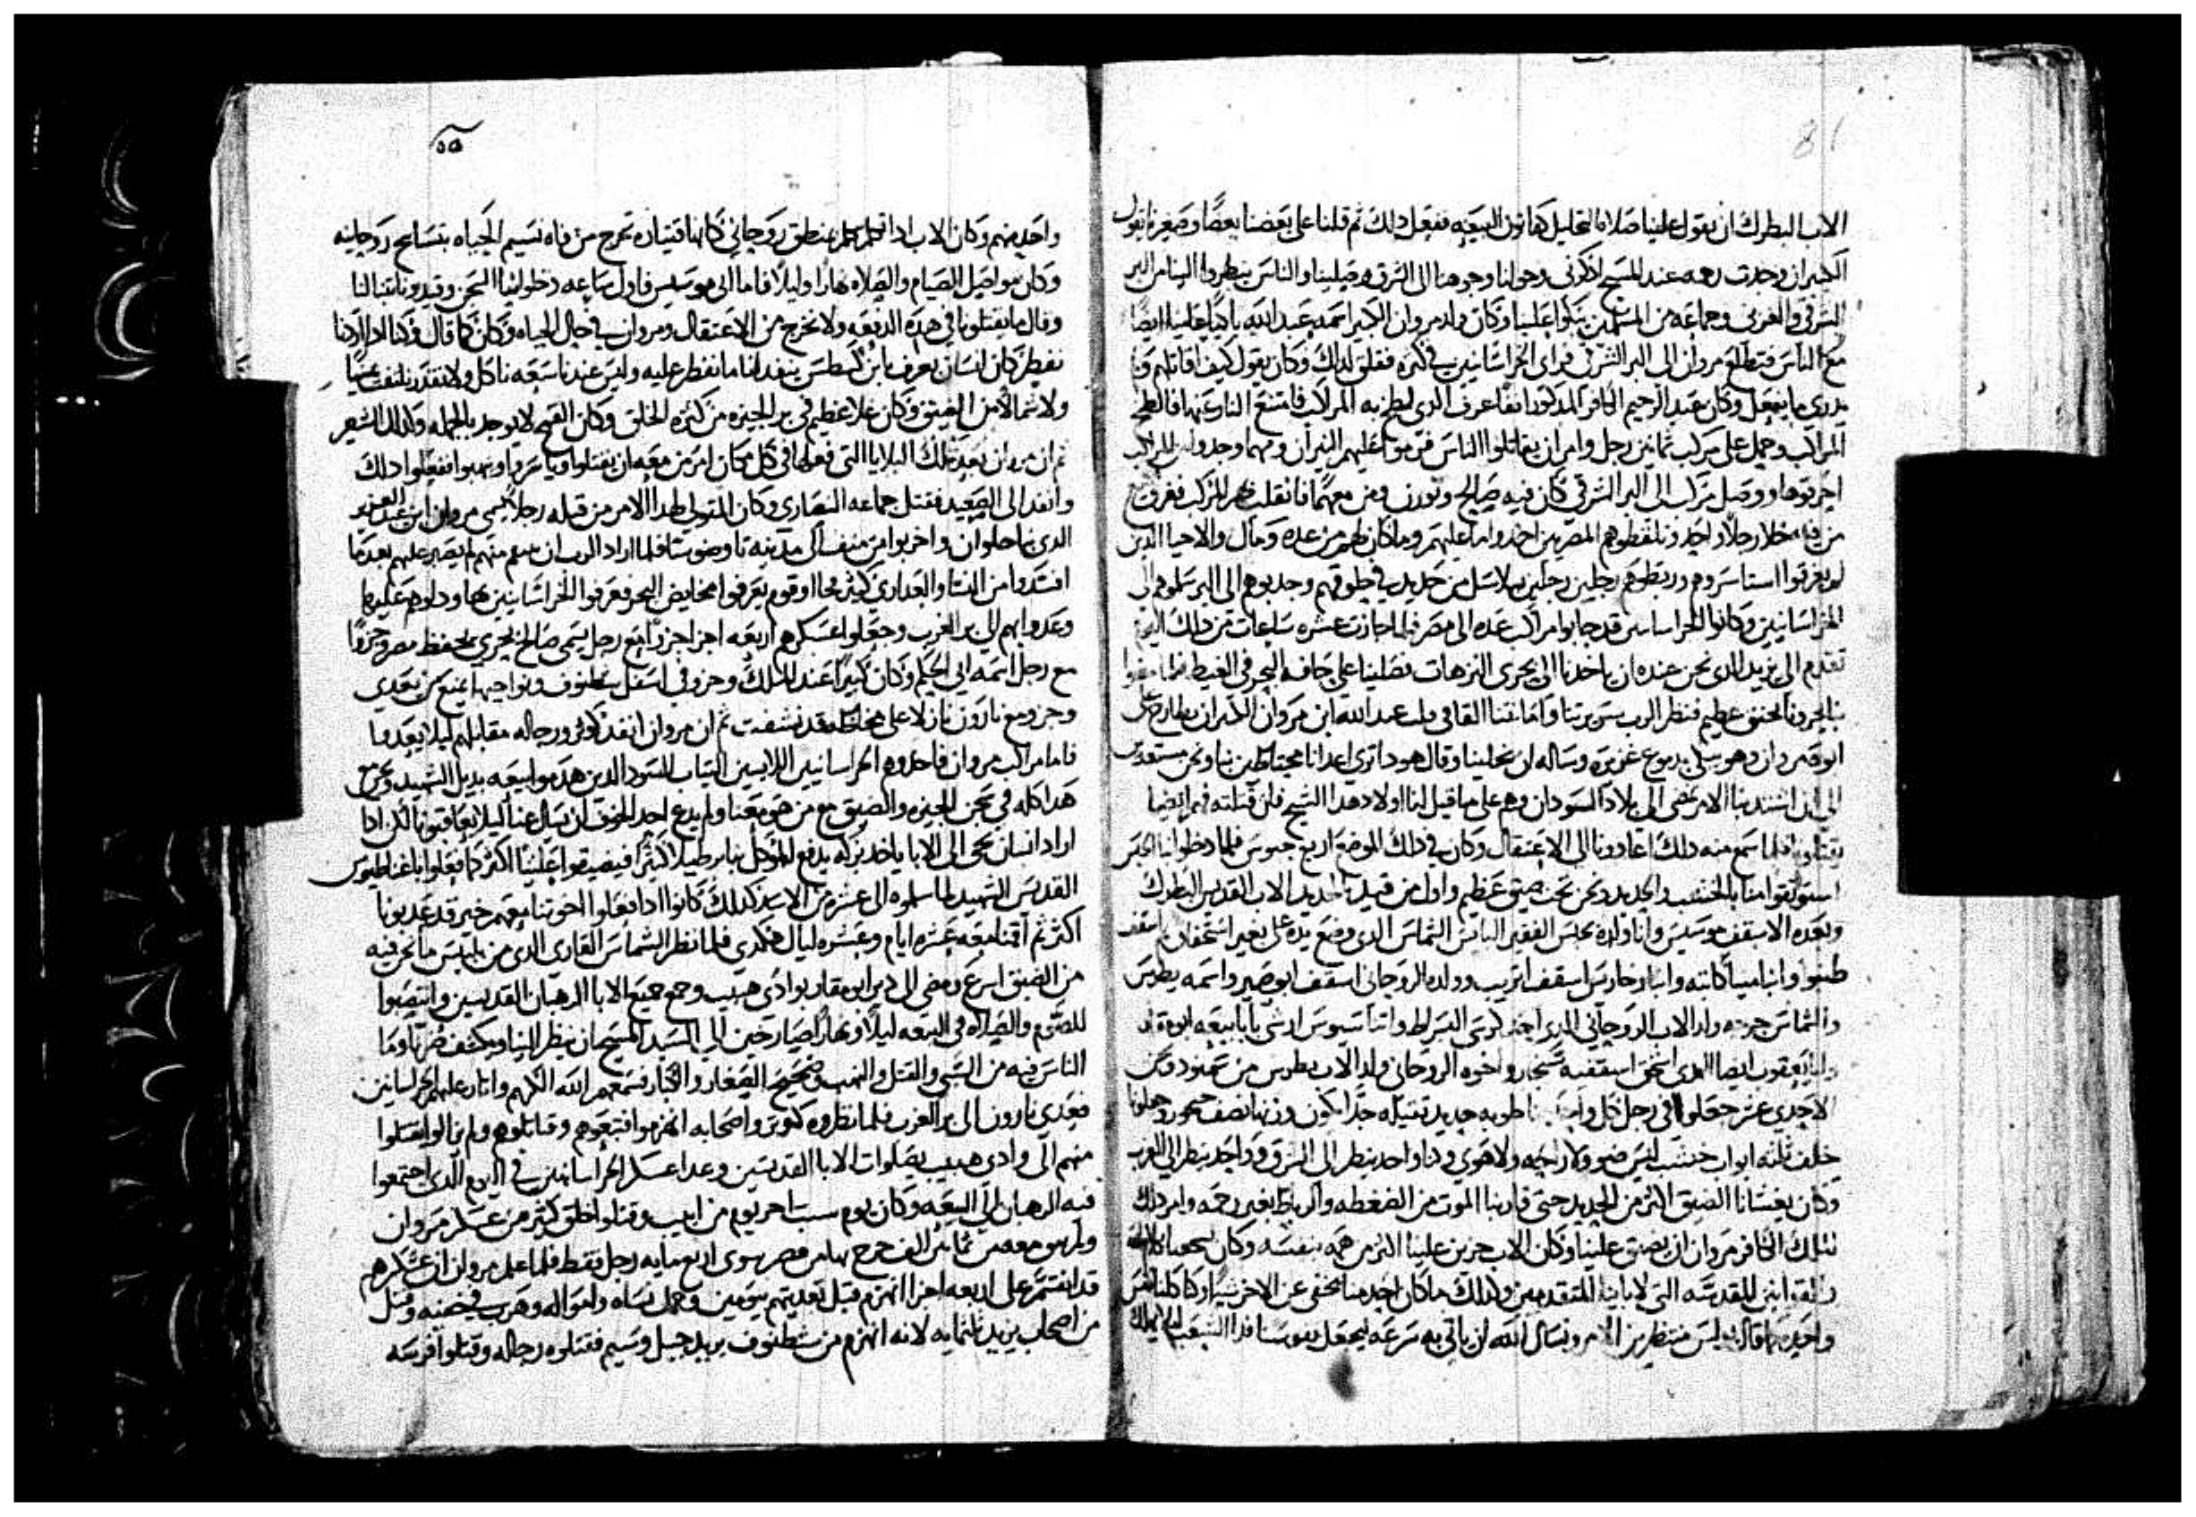 81
الاب البطرك ان يقول علينا صلاة التحليل كقانون البيعه ففعل ذلك ثم قبلنا على بعضنا بعضًا وصغيرنا يقول
الكبير ان وجدت رحمه عند المسيح اذكرنى وحولنا وجوهنا الى الشرق وصلينا والناس ينظروا الينا من البر
الشرقى والغربى وجماعه من المسلمين بكوا علينا وكان ولد مروان الكبير اسمه عبد الله باكيًا علينا ايضًا
مع الناس فتطلع مروان الى البر الشرقى فراى الخراسانيين فى كثره فقلق لذلك وكان يقول كيف اقاتلهم وما
يدرى ما يفعل وكان عبد الرحيم الكافر المذكور انفًا عرف الدى لطخ به المراكب فامتنع النار عنها فالطخ
المراكب وحمل على مركب ثمانين رجل وامر ان يقاتلوا الناس فرموا عليهم النيران ومهما وجدوا من المراكب
احرقوها ووصل مركب الى البر الشرقى كان فيه صالح ومن معهما فانقلب ظهر المركب فغرق
من فيه خلا رجلًا واحد وتلقطوهم المصريين اخدوا ما عليهم وما كان لهم من عده ومال والاحيا الدين
لم يغرقوا استاسروهم وربطوهم رجلين رجلين بسلاسل من حديد فى حلوقهم وجدبوهم الى البر سلموهم الى
الخراسانيين وكانوا الخراسانيين قد جابوا مراكب عده الى مصر فلما جازت عشره ساعات من ذلك اليوم
تقدم الى يزيد الدى نحن عنده ان ياخدنا الى بحرى النزهات فصلينا على حافه البحر فى الغيط
ابوه مروان وهو يبكى بدموع غزيره وساله ان يخلينا وقال هودا ترى اعدانا محتاطين بنا ونحن مستعدين
الى ان اشتد بنا الامر نمضى الى بلاد السودان وهم على ما قيل لنا اولاد هدا الشيخ فان قتلته فهم ايضا
يقتلونا فلما سمع منه دلك اعادونا الى الاعتقال وكان فى دلك الموضع اربع حبوس فلما دخلوا بنا الحبس
استوثقوا منا بالخشب والحديد ونحن تحت ضيق عظيم واول من قيد بالحديد الاب القديس البطرك
وبعده الاسقف موسيس وانا ولده يحنس الفقير البائس الشماس الدى وضع يده على بغير استحقاق اسقف
طنبوا وانبا مينا كاتبه وانبا زخارس اسقف اتريب وولده الروحانى اسقف ابوصير واسمه بطرس
والشماس جرجه ولد الاب الروحانى الدى اخد كرسى البراط واتناسيوس ابيعه
وانبا يعقوب ايضا الدى استحق اسقفيه سنجار واخوه الروحانى ولد الاب بطرس من سمنود وكنا
الاحدى عشر جعلوا فى رجل كل واحد منا طوبه حديد تقيله جدًا يكون وزنها نصف وجعلونا
خلف ثلثه ابواب خشب ليس ضو ولا راحه ولا هوى وكنا واحد ينظر الى الشرق وواحد ينظر الى الغرب
وكان يغشانا الضيق اكثر من الحديد حتى قاربنا الموت من الضغطه والرباط بغير رحمه وامر دلك
الملك الكافر مروان ان يضيق علينا وكان الاب حزين علينا اكثر من همه بنفسه وكان
للقديسه التى لاباينا المتقدمين ولدلك ما كان احد منا يخفى عن الاخر شيئًا وكنا كلنا نفس
واحده كما قال بولس منتظرين الامر ونسال الله ان ياتى به سرعه
٥٥
واحد منهم وكان الاب ادا تكلم بمنطق روحانى كانها قيثاره تخرج من فاه نسيم الحياه بتسابيح روحانيه
وكان مواصل الصيام والصلاه نهارًا وليلًا فاما ابى موسيس فاول ساعه دخلوا بنا السجن وقيدونا تنبا لنا
وقال ما يقتلونا فى هده الدفعه ولا نخرج من الاعتقال ومروان فى حال الحياه وكان كما قال وكنا ادا اردنا
نفطر كان انسان يعرف بابن قسطس ينفد لنا ما نفطر عليه وليس عندنا سعه ناكل ولا نقدر نلتفت يمينًا
ولا شمالًا من الضيق وكان غلا عظيم فى بر الجيزه من كثره الخلق وكان القمح لا يوجد بالجمله وكدلك الشعير
ثم ان مروان بعد تلك البلايا التى فعلها فى كل مكان امر من معه ان يقتلوا وياسروا وينهبوا ففعلوا دلك
وانفد الى الصعيد فقتل جماعه النصارى وكان المتولى لهدا الامر من قبله رجلًا يسمى مروان ابن عبد العزيز
الدى بنا حلوان واخربوا من منف الى مدينه تاوضوسيا فلما اراد الرب ان ينتقم منهم لم يصبر عليهم بعد ما
افسدوا من النسا والعدارى كثير فجاوا قوم يعرفوا مخايض البحر فعرفوا الخراسانيين بها ودلوهم عليها
وعدوا بهم الى بر الغرب وجعلوا عسكرهم اربعه اجزا جزًا مع رجل يسمى صالح بحرى يحفظ مصر وجزوًا
مع رجل اسمه ابى الحكم وكان كبيرًا عند الملك وجزو فى اسفل شطنوف ونواحيها يمنع من يعدى
وجزو مع نازلًا على مخاضه قد نشفت ثم ان مروان انفد كوثر ورجاله مقابلهم ليلا يعدوا
فاما مراكب مروان فاخدوهم الخراسانيين اللابسين الثياب السود الدين هدموا بيعه
هدا كله فى سجن الجيزه والضيق مع من هو معنا ولم يدع احد للخوف ان يسال عنا ليلا يعاقبونا لكن ادا
اراد انسان يجى الى الابا ياخد بركه يدفع للموكل بنا برطيلًا كثيرًا فيضيقوا علينا اكثر كما فعلوا باغناطيوس
القديس الشهيد لما سلموه الى عشره من الاسد كدلك كانوا ادا فعلوا اخوتنا معهم خير قد عدبونا
اكثر ثم اقمنا معه عشره ايام وعشره ليال هكدى فلما نظر الشماس القارى الدى من بلبيس ما نحن فيه
من الضيق اسرع ومضى الى دير ابو مقار بوادى هبيب وجمع جميع الابا الرهبان القديسين وانتصبوا
للصوم والصلاه فى البيعه ليلًا ونهارًا صارخين الى السيد المسيح ان ينظر الينا ويكشف ضرنا وما
الناس فيه من السبى والقتل والنهب وضجيج الصغار والكبار فسمعهم الله اللهم واثار عليهم الخراسانيين
فعدى الى بر الغرب فلما نظروه كوثر واصحابه انهزموا فتبعوهم وقاتلوهم ولم يزالوا يقتلوا
منهم الى وادى هبيب بصلوات الابا القديسين وعدا عسكر الخراسانيين فى اليوم الدى اجتمعوا
فيه الرهبان الى البيعه وكان يوم سبت اخر يوم من ابيب وقتلوا خلق كثير من عسكر مروان
ولم يبق معه من ثمانين الف خرج بهم من مصر سوى اربع مايه رجل فقط فلما علم مروان ان عسكرهم
قد انقسم على اربعه اجزا انهزم قبل تعديتهم بيومين وحمل نساه وامواله وهرب فى خفيه وقتل
من اصحاب يزيد ثلثمايه لانه انهزم من شطنوف يريد جبل وسيم فقتلوه رجاله وقتلوا فرسه